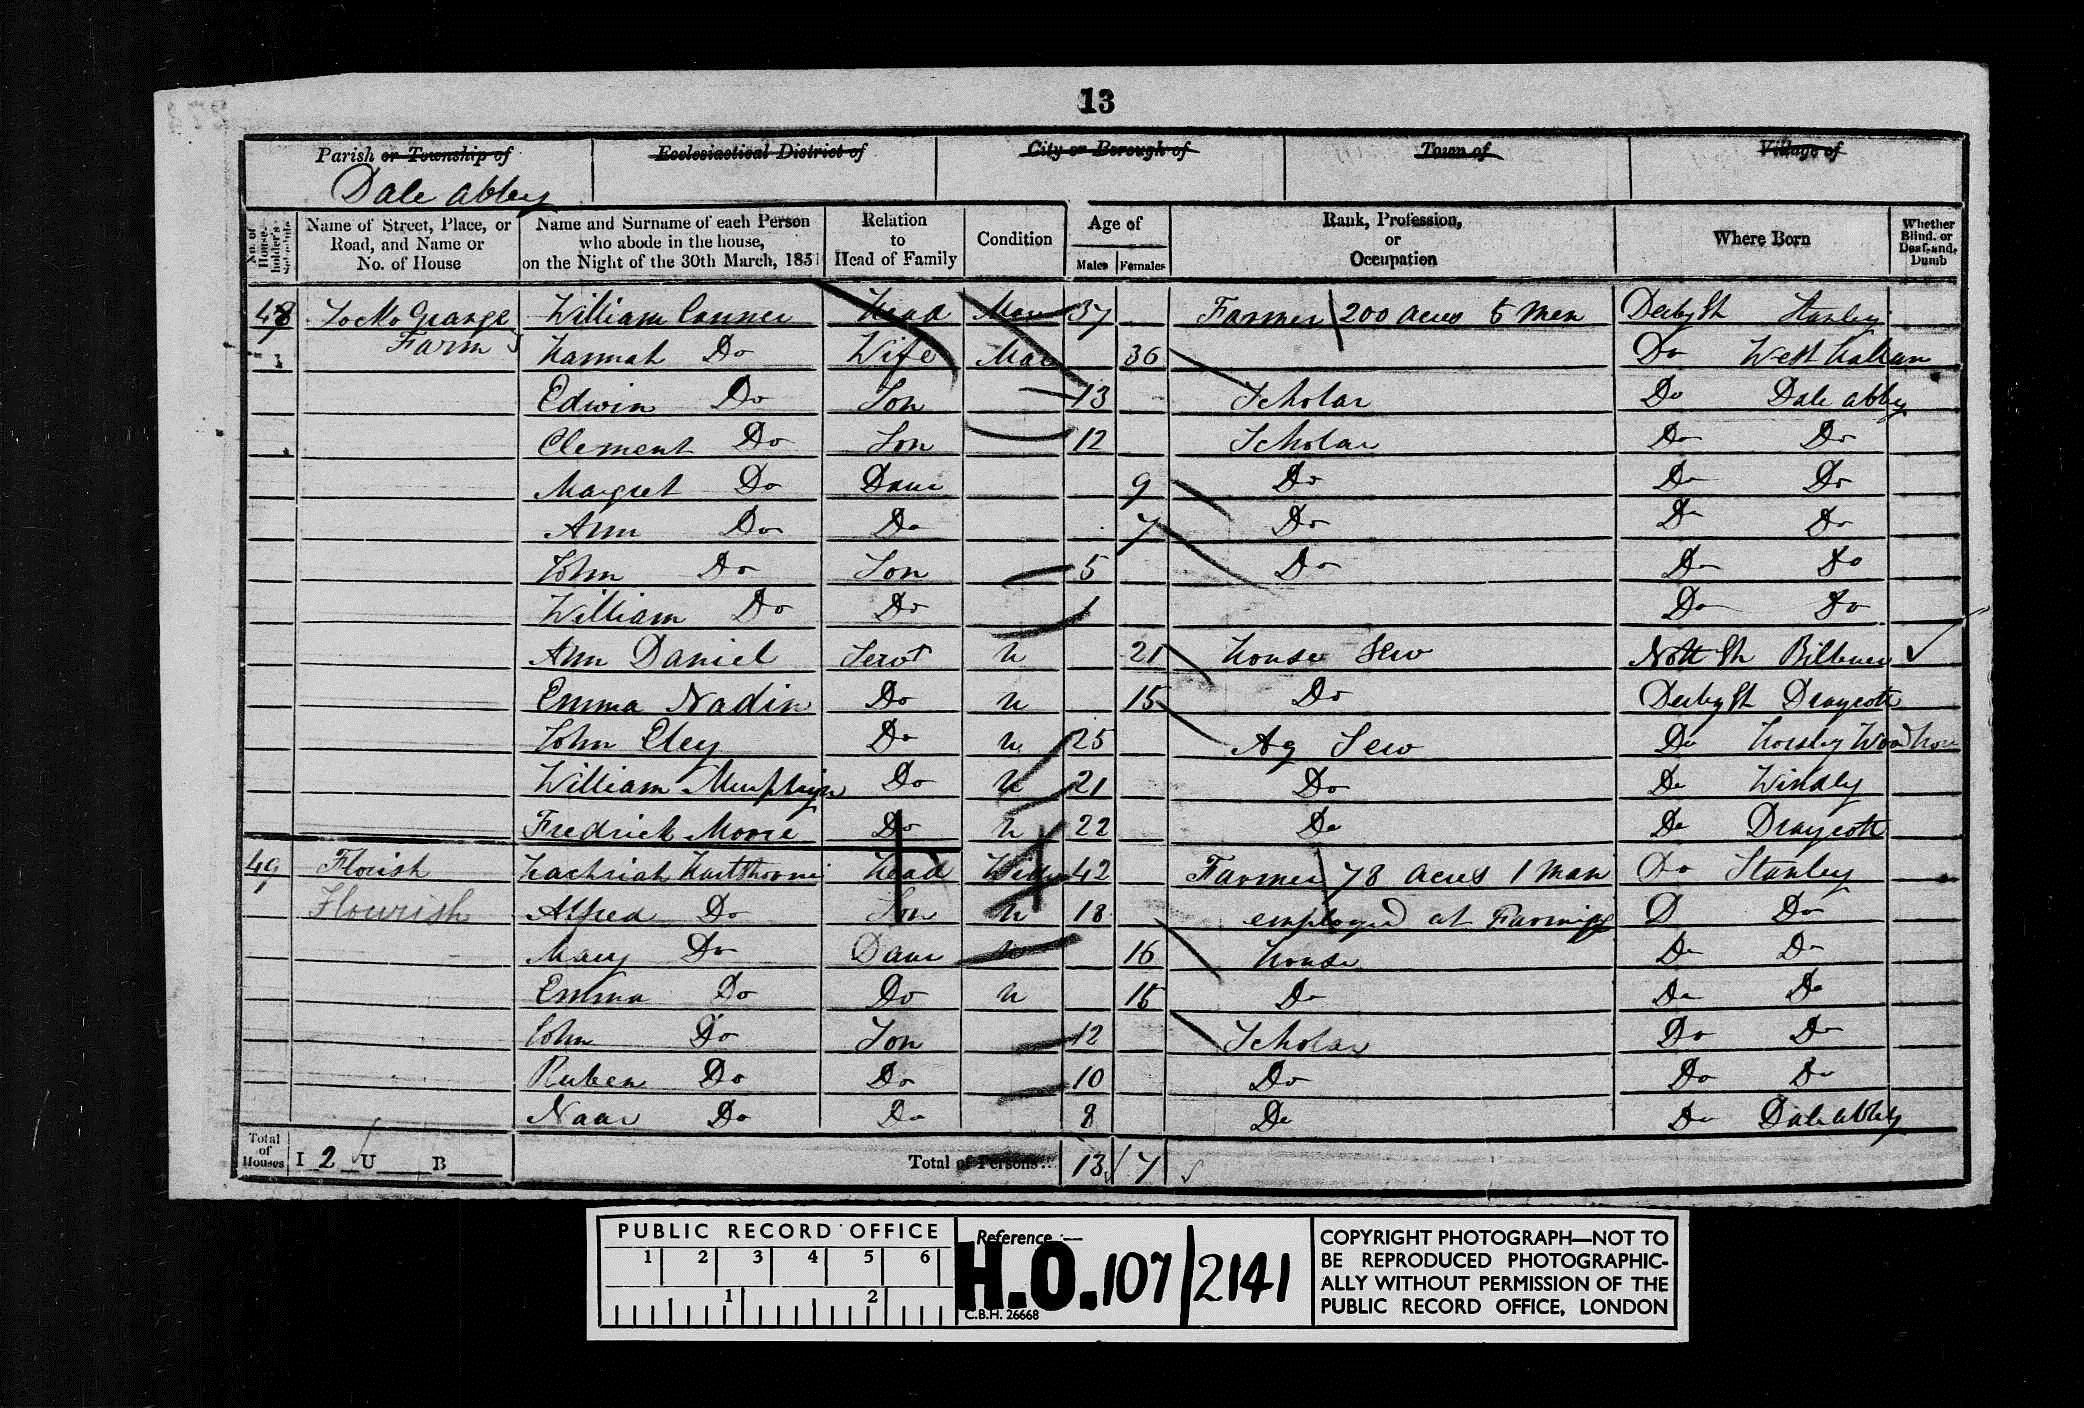 13
Parish or Township of Ecclesiastical District of City or Borough of Town of Village of
Dale abbey
No. of House-holder's Schedule
Name of Street, Place, or Road, and Name or No. of House
Name and Surname of each Person who abode in the house, on the Night of the 30th March, 1851
Relation to Head of Family
Condition
Age of Males Females
Rank, Profession, or Occupation
Where Born
Whether Blind, or Deaf-and-Dumb
48 Locko Grange William Head Mar 37 Farmer 200 acres 5 Men DerbySh Stanley
Farm Hannah Do Wife Mar 36 Do West Hallam
Edwin Do Son 13 Scholar Do Dale abbey
Clement Do Son 12 Scholar Do Do
Margret Do Daur 9 Do Do Do
Ann Do Do 7 Do Do Do
John Do Son 5 Do Do Do
William Do Do 1 Do Do
Ann Daniel Servt U 21 House Serv NottSh
Emma Nadin Do U 15 Do DerbySh Draycott
John Eley Do U 25 Ag Serv Do Horsley Woodhou
William Do U 21 Do Do Windley
Fredrick Moore Do U 22 Do Do Draycott
49 Florish Zachriah Head Widr 42 Farmer 78 acres 1 Man Do Stanley
Flourish Alfred Do Son U 18 employed at Farming D Do
Mary Do Daur U 16 House Do Do
Emma Do Do U 15 Do Do Do
John Do Son 12 Scholar Do Do
Ruben Do Do 10 Do Do Do
Naar Do Do 8 Do Do Dale abbey
Total of Houses I 2 U B Total of Persons 13 7
PUBLIC RECORD OFFICE
1 2 3 4 5 6
1 2
Reference :—
H.O. 107/2141
C.B.H. 26668
COPYRIGHT PHOTOGRAPH—NOT TO
BE REPRODUCED PHOTOGRAPHIC-
ALLY WITHOUT PERMISSION OF THE
PUBLIC RECORD OFFICE, LONDON